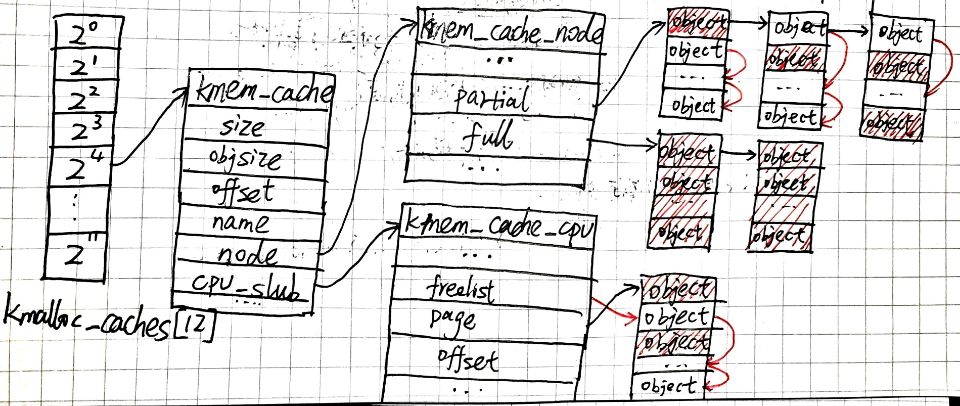 2⁰
2¹
2²
2³
2⁴
⋮
2¹¹
kmalloc_caches[12]
kmem_cache
size
objsize
offset
name
node
CPU_slub
...
kmem_cache_node
...
partial
full
...
kmem_cache_cpu
...
freelist
page
offset
...
object
object
...
object
object
object
...
object
object
object
...
object
object
object
...
object
object
object
...
object
object
object
object
...
object